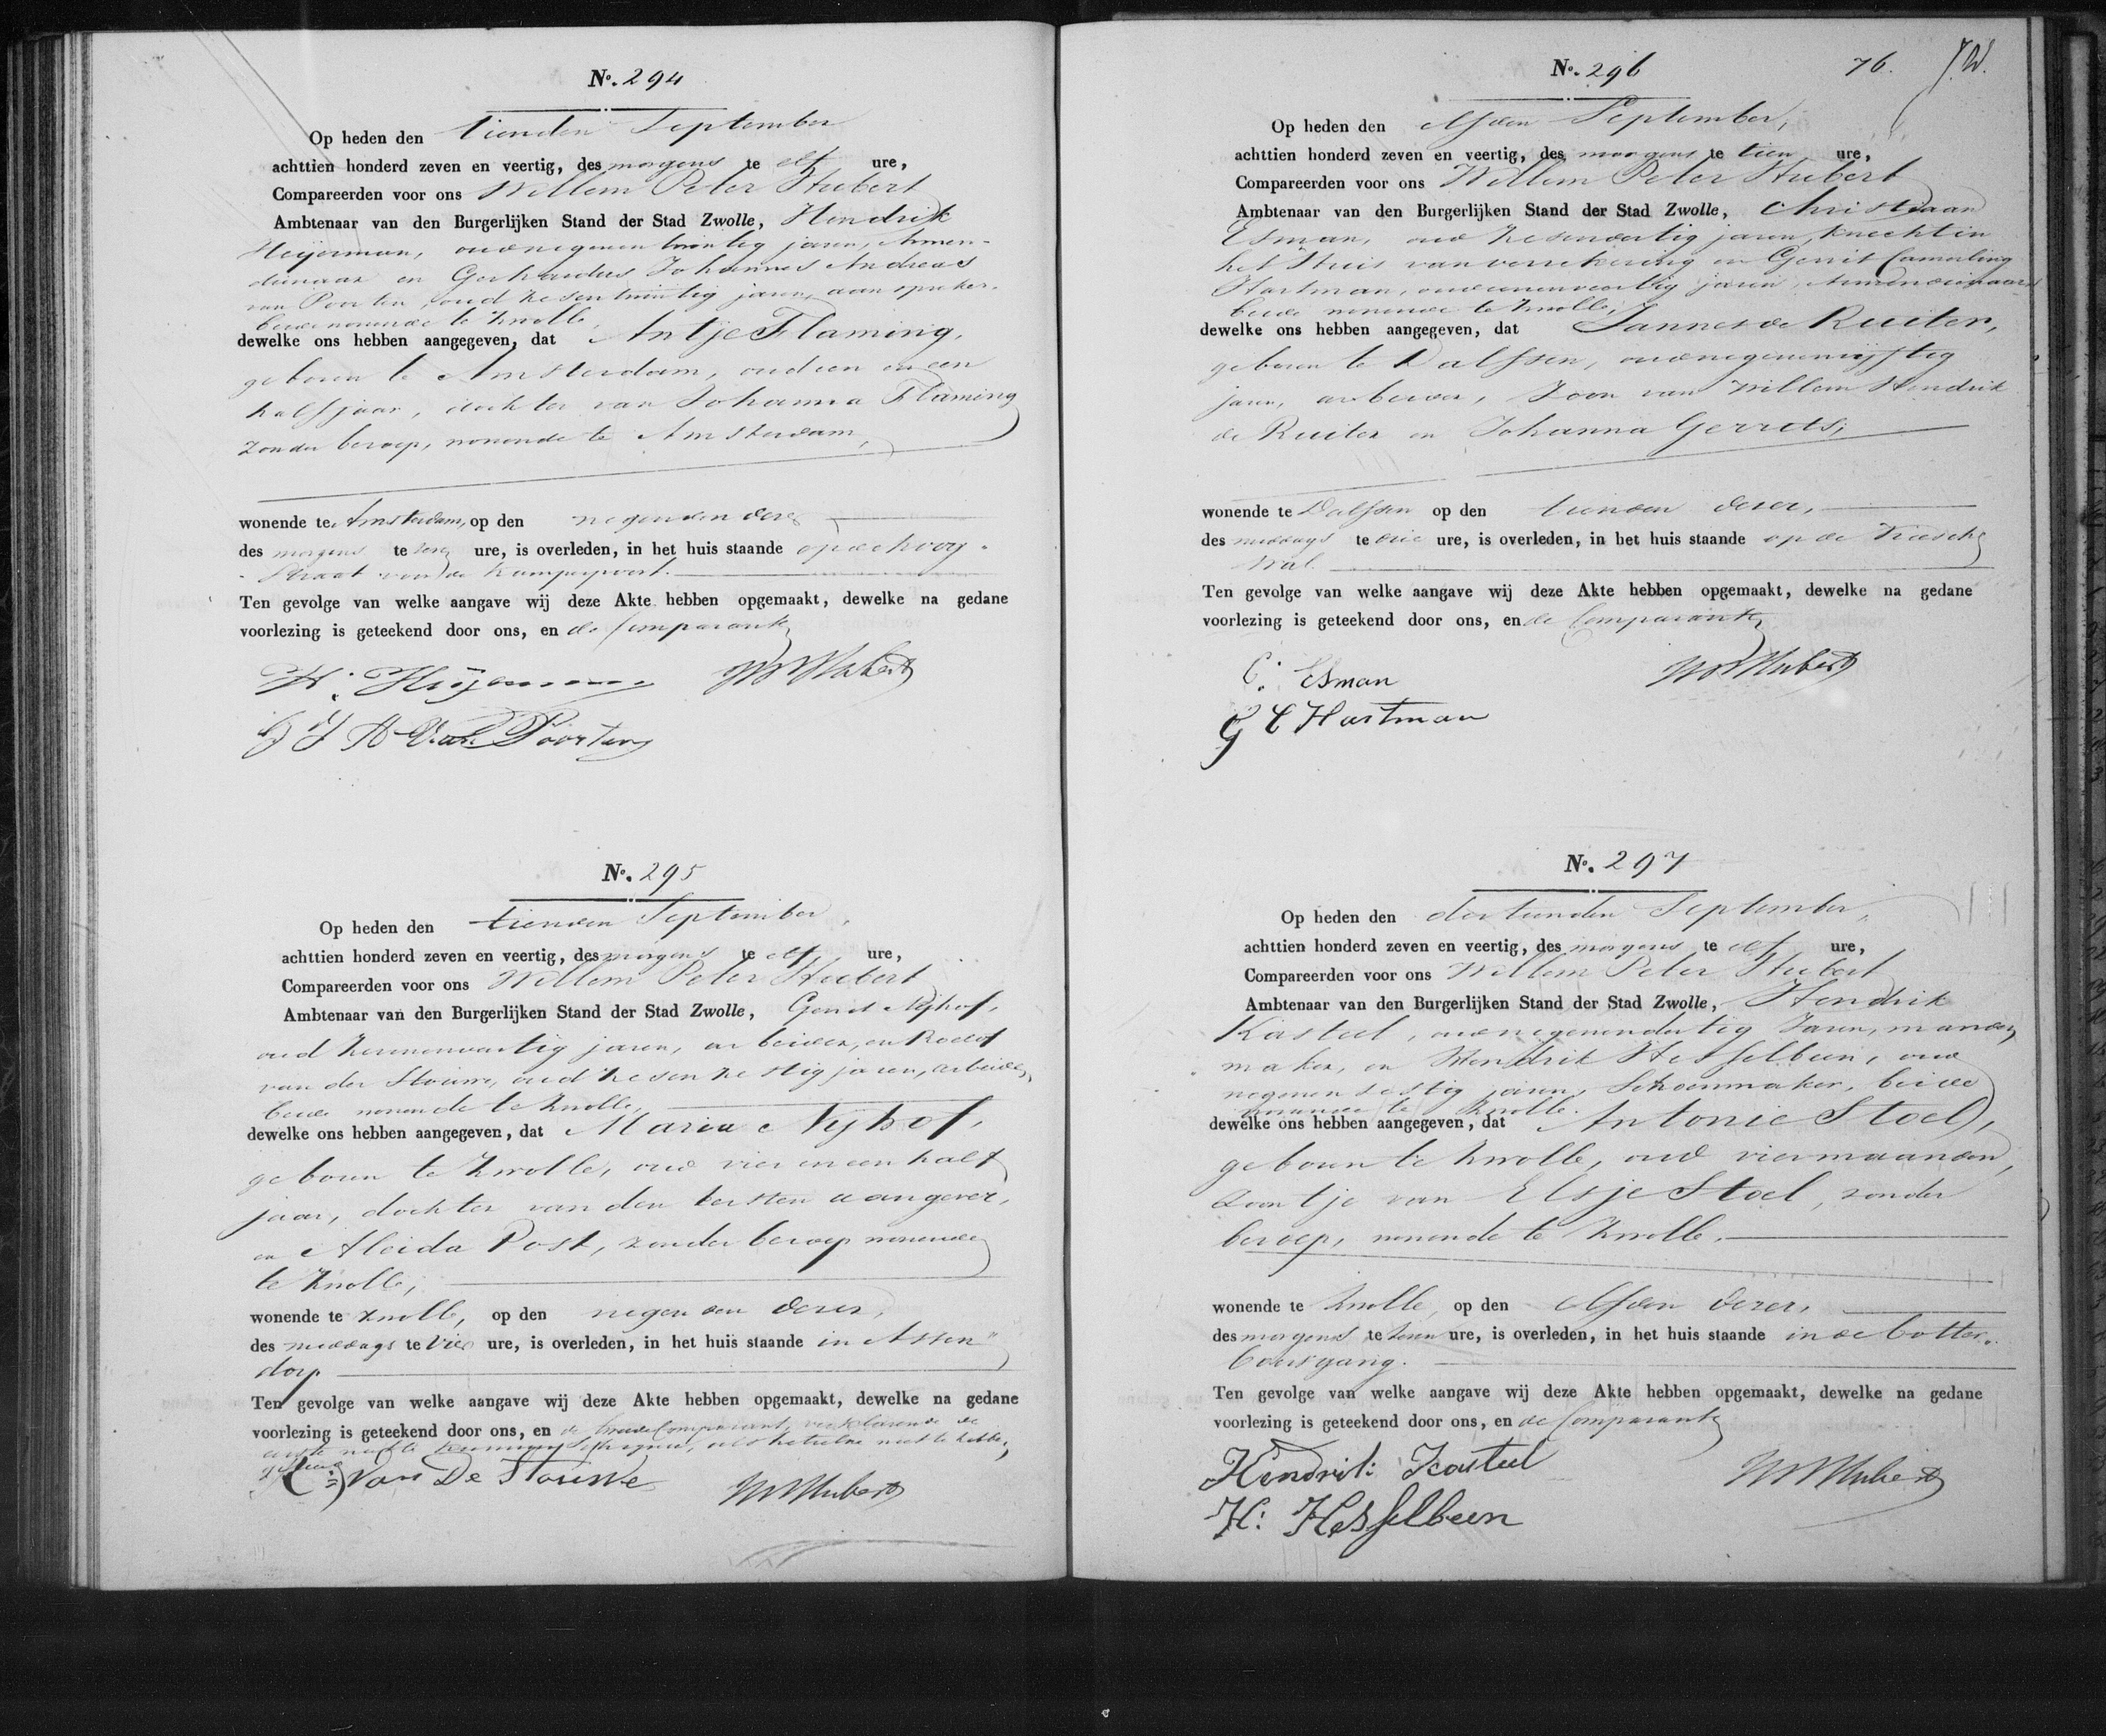 No. 294
Op heden den tienden September
achttien honderd zeven en veertig, des morgens te elf ure,
Compareerden voor ons Willem Peter Hubert
Ambtenaar van den Burgerlijken Stand der Stad Zwolle, Hendrik
Heijerman, oud negenentwintig jaren, Armen-
dienaar en Gerhardus Johannes Andreas
van Poorten oud zesentwintig jaren, aanspreker.
beide wonende te Zwolle,
dewelke ons hebben aangegeven, dat Antje Flaming,
geboren te Amsterdam, oud een en een
half jaar, dochter van Johanna Flaming
zonder beroep, wonende te Amsterdam,
wonende te Amsterdam, op den negenden dezer
des morgens te zeven ure, is overleden, in het huis staande op de hoog-
straat voor de Kamperpoort.
Ten gevolge van welke aangave wij deze Akte hebben opgemaakt, dewelke na gedane
voorlezing is geteekend door ons, en de Comparanten
H: Heijerman WPHubert
G J A Van Poorten
No. 295
Op heden den tienden September,
achttien honderd zeven en veertig, des morgens te elf ure,
Compareerden voor ons Willem Peter Hubert
Ambtenaar van den Burgerlijken Stand der Stad Zwolle, Gerrit Nijhof,
oud zevenenveertig jaren, arbeider, en Roelof
van der Stouwe, oud zesenzestig jaren, arbeider,
beide wonende te Zwolle,
dewelke ons hebben aangegeven, dat Maria Nijhof,
geboren te Zwolle, oud vier en een half
jaar, dochter van den eersten aangever,
en Aleida Post, zonder beroep wonende
te Zwolle,
wonende te Zwolle, op den negenden dezer,
des middags te vier ure, is overleden, in het huis staande in Assen"
dorp
Ten gevolge van welke aangave wij deze Akte hebben opgemaakt, dewelke na gedane
voorlezing is geteekend door ons, en de tweede Comparant, verklarende de
eerste niet te kunnen schrijven, als hetzelve niet te hebben
geleerd
Van De Stouwe WPHubert
No. 296 76. J.W.
Op heden den elfden September,
achttien honderd zeven en veertig, des morgens te tien ure,
Compareerden voor ons Willem Peter Hubert
Ambtenaar van den Burgerlijken Stand der Stad Zwolle, Christiaan
Esman, oud zesenveertig jaren, knecht in
het Huis van verzekering en Gerrit Camerling
Hartman, oud eenenveertig jaren, Armendienaar
beide wonende te Zwolle,
dewelke ons hebben aangegeven, dat Jannes de Ruiter,
geboren te Dalfsen, oud negenenvijftig
jaren, arbeider, zoon van Willem Hendrik
de Ruiter en Johanna Gerrets,
wonende te Dalfsen op den tienden dezer,
des middags te drie ure, is overleden, in het huis staande op de Friesche
wal.
Ten gevolge van welke aangave wij deze Akte hebben opgemaakt, dewelke na gedane
voorlezing is geteekend door ons, en de Comparanten
C: Esman WPHubert
G C Hartman
No. 297
Op heden den dertienden September,
achttien honderd zeven en veertig, des morgens te elf ure,
Compareerden voor ons Willem Peter Hubert
Ambtenaar van den Burgerlijken Stand der Stad Zwolle, Hendrik
Kasteel, oud negenendertig Jaren, manden
maker, en Hendrik Hesselbeen, oud
negenensestig jaren, Schoenmaker, beide
wonende te Zwolle.
dewelke ons hebben aangegeven, dat Antonie Stoel,
geboren te Zwolle, oud vier maanden,
zoontje van Elsje Stoel, zonder
beroep, wonende te Zwolle.
wonende te Zwolle, op den elfden dezer,
des morgens te zeven ure, is overleden, in het huis staande in de botter-
boersgang.
Ten gevolge van welke aangave wij deze Akte hebben opgemaakt, dewelke na gedane
voorlezing is geteekend door ons, en de Comparanten
Hendrik: Kasteel WPHubert
H: Hesselbeen